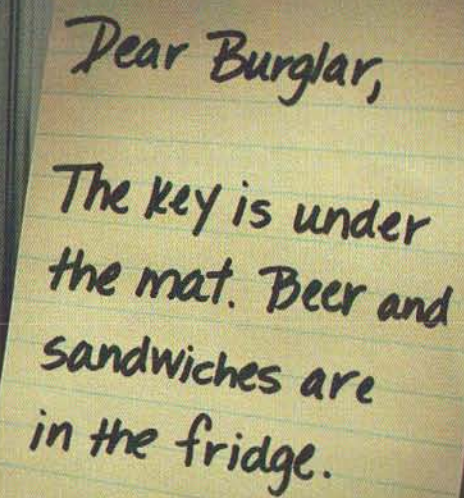 Dear Burglar,
The key is under
the mat. Beer and
sandwiches are
in the fridge.